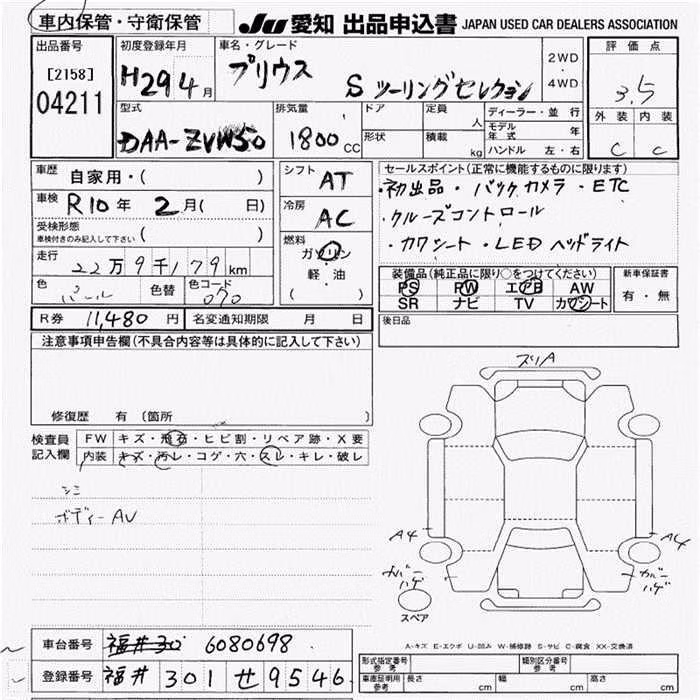 車内保管・守衛保管
JU 愛知 出品申込書 JAPAN USED CAR DEALERS ASSOCIATION
出品番号
[2158]
04211
初度登録年月
H29 4月
車名・グレード
プリウス S ツーリングセレクション
2WD
・
4WD
評価点
3.5
外装 内装
C C
型式
DAA-ZVW50
排気量
1800 CC
ドア
形状
定員 人
積載 kg
ディーラー・並行
モデル年式 年
ハンドル 左・右
車歴 自家用・( )
車検 R10年 2月( 日)
受検形態
車検付きのみ記入して下さい ( )
走行 22万9千179km
色 パール 色替 色コード 070
シフト AT
冷房 AC
燃料
ガソリン
軽・油
( )
セールスポイント(正常に機能するものに限ります)
・初出品・バックカメラ・ETC
・クルーズコントロール
・カワシート・LEDヘッドライト
装備品(純正品に限り○をつけてください)
PS PW エアB AW
SR ナビ TV カワシート
新車保証書
有・無
R券 11,480円 名変通知期限 月 日
後日品
注意事項申告欄(不具合内容等は具体的に記入して下さい)
修復歴 有(箇所 )
検査員記入欄
FW キズ・飛石・ヒビ割・リペア跡・X要
内装 キズ・汚レ・コゲ・穴・スレ・キレ・破レ
シミ
ボディーAU
ズリA
A4
A4
カバーハゲ
カバーハゲ
スペア
A-キズ E-エクボ U-凹み W-補修跡 S-サビ C-腐食 XX-交換済
車台番号 福井30 6080698
登録番号 福井 301 せ 9546
形式指定番号 参考
類別区分番号 参考
車庫証明用 参考 長さ cm 幅 cm 高さ cm